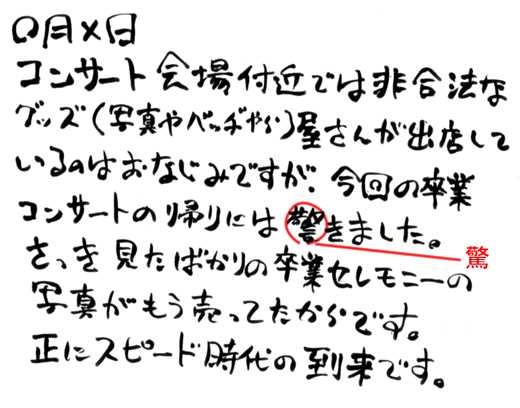 〇月×日
コンサート会場付近では非合法な
グッズ(写真やバッヂやら)屋さんが出店して
いるのはおなじみですが、今回の卒業
コンサートの帰りには警きました。
驚
さっき見たばかりの卒業セレモニーの
写真がもう売ってたからです。
正にスピード時代の到来です。